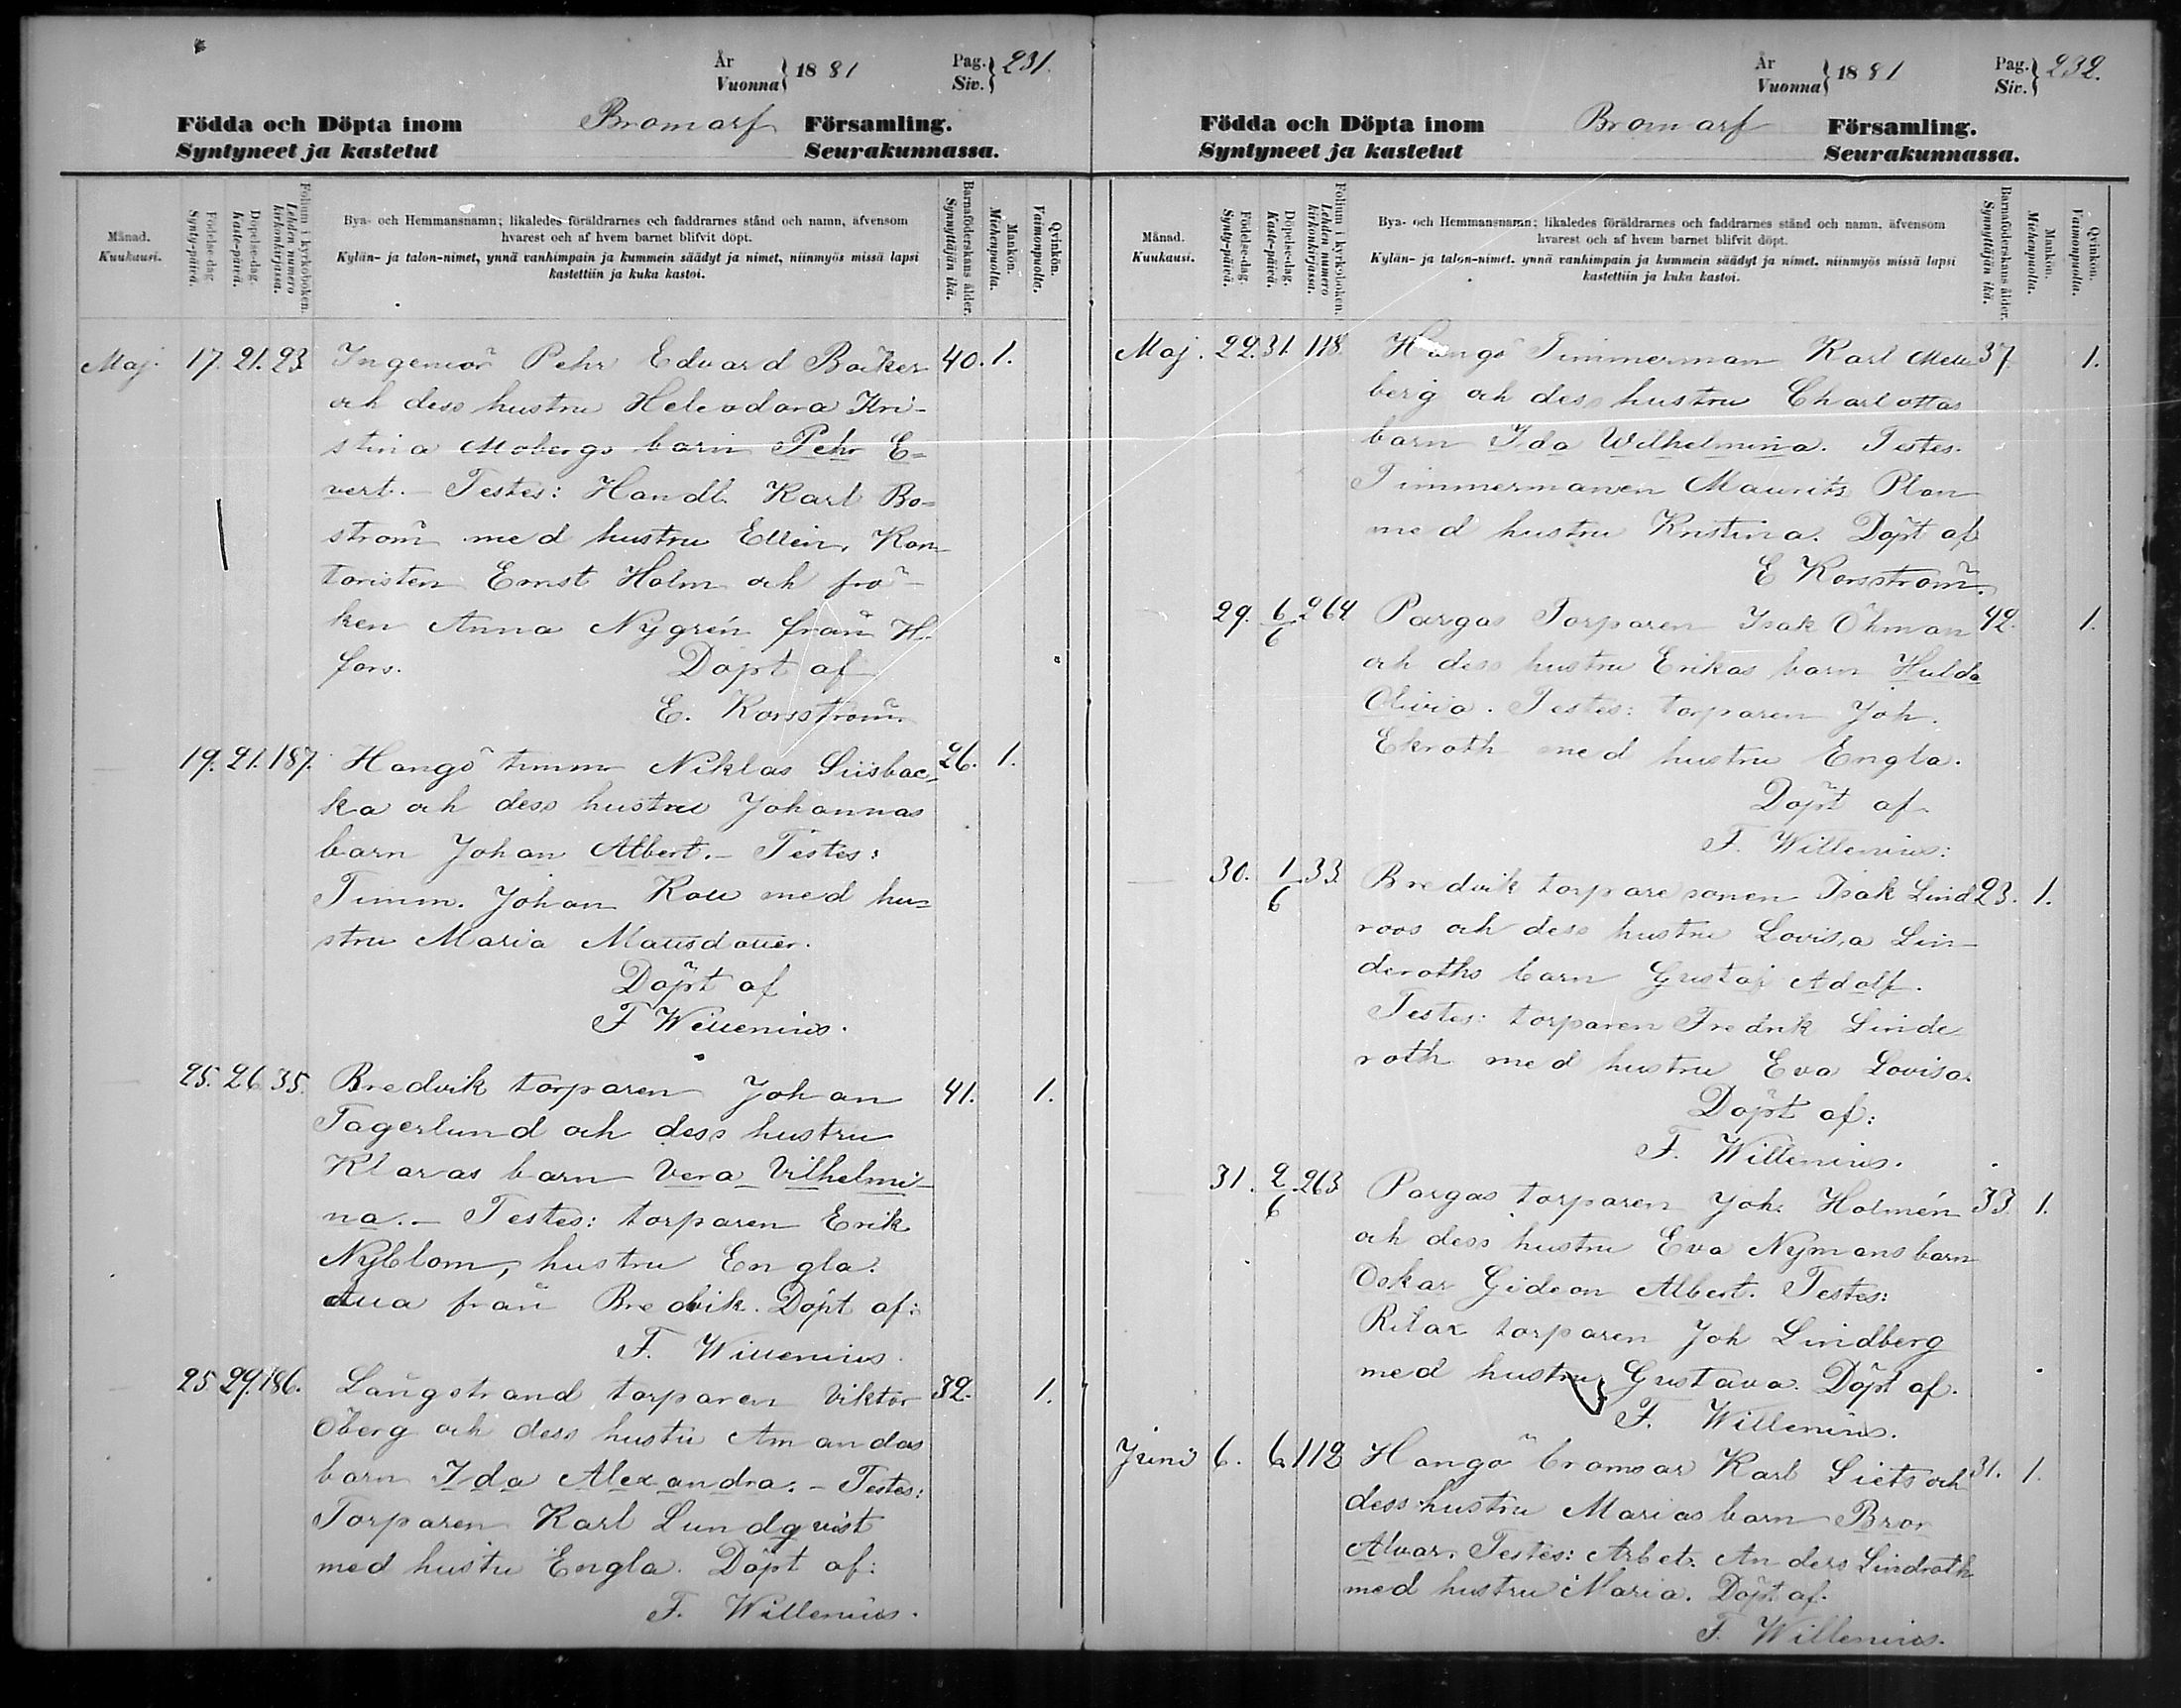 År
Vuonna } 1881
Pag.
Siv. } 231.
Födda och Döpta inom Bromarf Församling.
Syntyneet ja kastetut Seurakunnassa.
Månad.
Kuukausi.
Födelse-dag.
Synty-päivä.
Döpelse-dag.
Kaste-päivä.
Folium i kyrkoboken.
Lehden numero kirkonkirjassa.
Bya- och Hemmansnamn; likaledes föräldrarnes och faddrarnes stånd och namn, äfvensom
hvarest och af hvem barnet blifvit döpt.
Kylän- ja talon-nimet, ynnä vanhimpain ja kummein säädyt ja nimet, niinmyös missä lapsi
kastettiin ja kuka kastoi.
Barnaföderskans ålder.
Synnyttäjän ikä.
Mankön.
Miehenpuolia.
Qvinkön.
Vaimonpuolia.
Maj. 17. 21. 23. Ingeniör Pehr Edvard Bäcker 40. 1.
och dess hustru Heleodora Kri-
stina Mobergs barn Pehr E=
vert. – Testes: Handl. Karl Bo=
ström med hustru Ellen, Kon-
toristen Ernst Holm och frö-
ken Anna Nygrén från H.
fors. Döpt af
E. Korsström
19. 21. 187. Hangö timm Niklas Siisbac- 26. 1.
ka och dess hustru Johannas
barn Johan Albert. – Testes:
Timm. Johan Koll med hu=
stru Maria
Döpt af
F Willenius.
25. 26. 35. Bredvik torparen Johan 41. 1.
Fagerlund och dess hustru
Klaras barn Vera Vilhelmi-
na. – Testes: torparen Erik
Nyblom, hustru Engla.
Alla från Bredvik. Döpt af:
F. Willenius.
25 29. 186. Långstrand torparen Viktor 32. 1.
Öberg och dess hustru Amandas
barn Ida Alexandra. – Testes:
Torparen Karl Lundqvist
med hustru Engla. Döpt af:
F. Willenius.
År
Vuonna } 1881
Pag.
Siv. } 232.
Födda och Döpta inom Bromarf Församling.
Syntyneet ja kastetut Seurakunnassa.
Månad.
Kuukausi.
Födelse-dag.
Synty-päivä.
Döpelse-dag.
Kaste-päivä.
Folium i kyrkoboken.
Lehden numero kirkonkirjassa.
Bya- och Hemmansnamn; likaledes föräldrarnes och faddrarnes stånd och namn, äfvensom
hvarest och af hvem barnet blifvit döpt.
Kylän- ja talon-nimet, ynnä vanhimpain ja kummein säädyt ja nimet, niinmyös missä lapsi
kastettiin ja kuka kastoi.
Barnaföderskans ålder.
Synnyttäjän ikä.
Mankön.
Miehenpuolia.
Qvinkön.
Vaimonpuolia.
Maj. 22. 31. 118. Hangö Timmerman Karl Mell 37. 1.
berg och dess hustru Charlottas
barn Ida Wilhelmina. Testes.
Timmermannen Maurits Plan
med hustru Kristina. Döpt af
E Korsström.
29. 6/6 264 Pargas Torparen Isak Öhman 42. 1.
och dess hustru Erikas barn Hulda
Olivia. Testes: torparen Joh.
Ekroth med hustru Engla.
Döpt af
F. Willenius:
30. 1/6 33. Bredvik torparesonen Isak Lind 23. 1.
roos och dess hustru Lovisa Lin-
deroths barn Gustaf Adolf.
Testes: torparen Fredrik Linde
roth med hustru Eva Lovisa.
Döpt af:
F. Willenius.
31. 2/6 263 Pargas torparen Joh. Holmén 33. 1.
och dess hustru Eva Nymans barn
Oskar Gideon Albert. Testes:
Rilax torparen Joh Lindberg
med hustru Gustava. Döpt af.
F. Willenius.
Juni 6. 6. 112 Hangö bromsar Karl Siets och 31. 1.
dess hustru Marias barn Bror
Alvar. Testes: Arbet. Anders Lindroth
med hustru Maria. Döpt af.
F. Willenius.